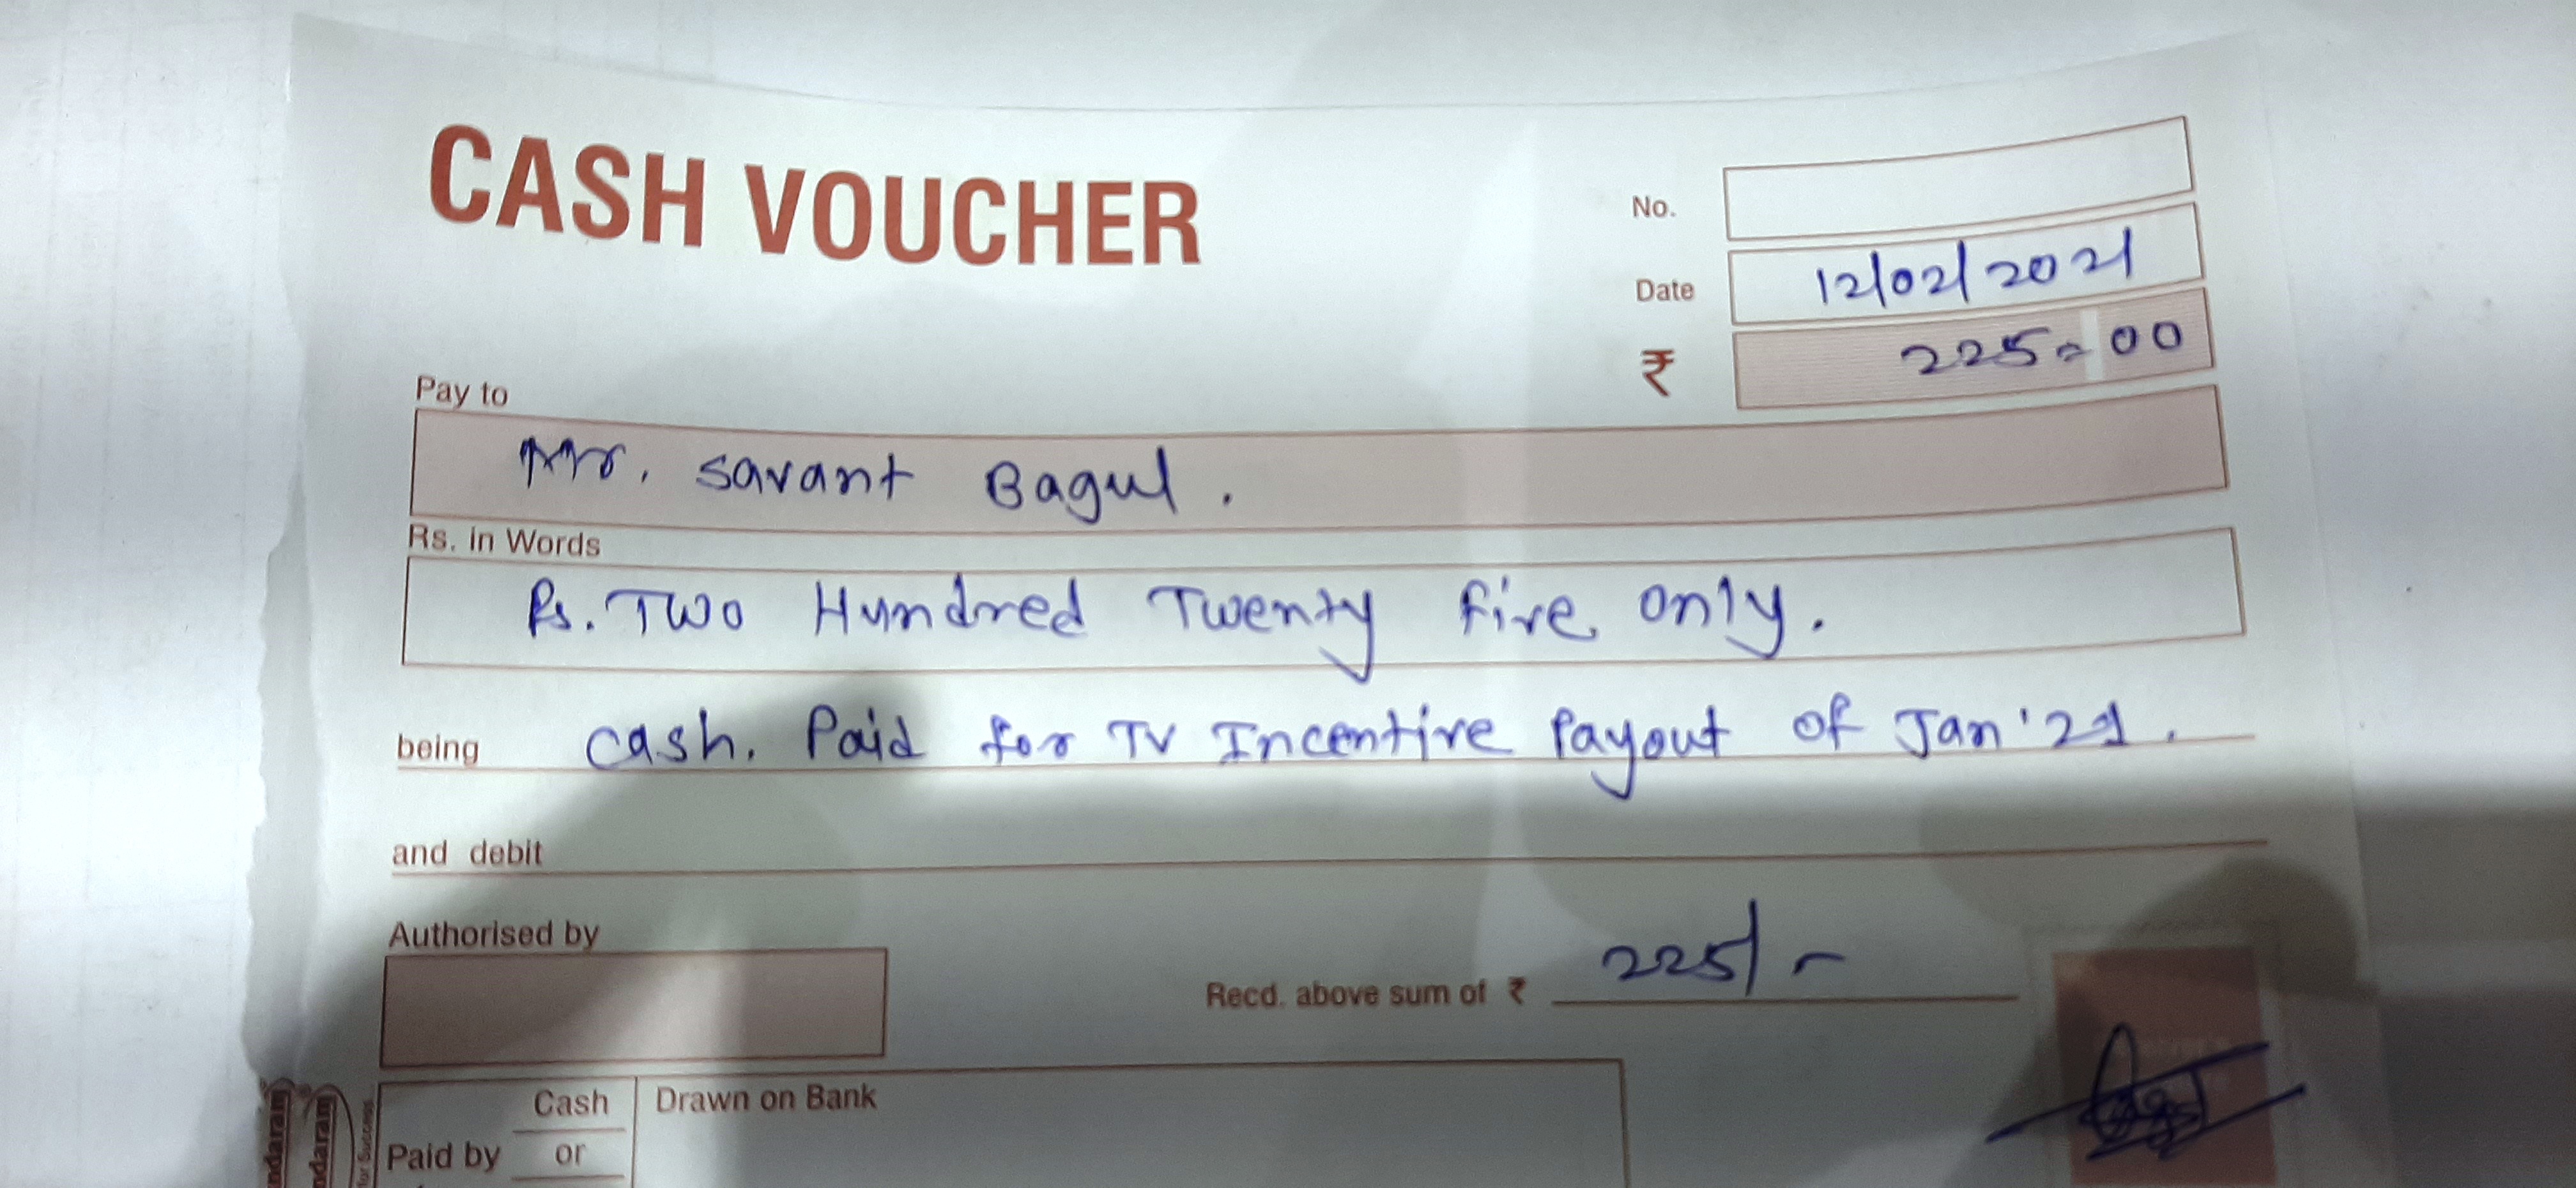 CASH VOUCHER
No.
Date 12/02/2021
₹ 225=00
Pay to
Mr. Savant Bagul.
Rs. in Words
Rs. Two Hundred Twenty Five only.
being Cash. Paid for TV Incentive Payout of Jan'21.
and debit
Authorised by
Recd. above sum of ₹ 225/-
Cash
Drawn on Bank
Paid by
or
ndaram
ndaram
for Success